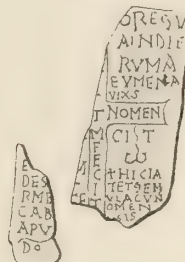 OREGV
AINDIE
RVMA
EVMENA
VIXS
NOMEN
CIST
TMFECIT
HICIA
TETSEM
VLACVN
OMEN
EIS
E
DES
RME
CAB
APV
DO